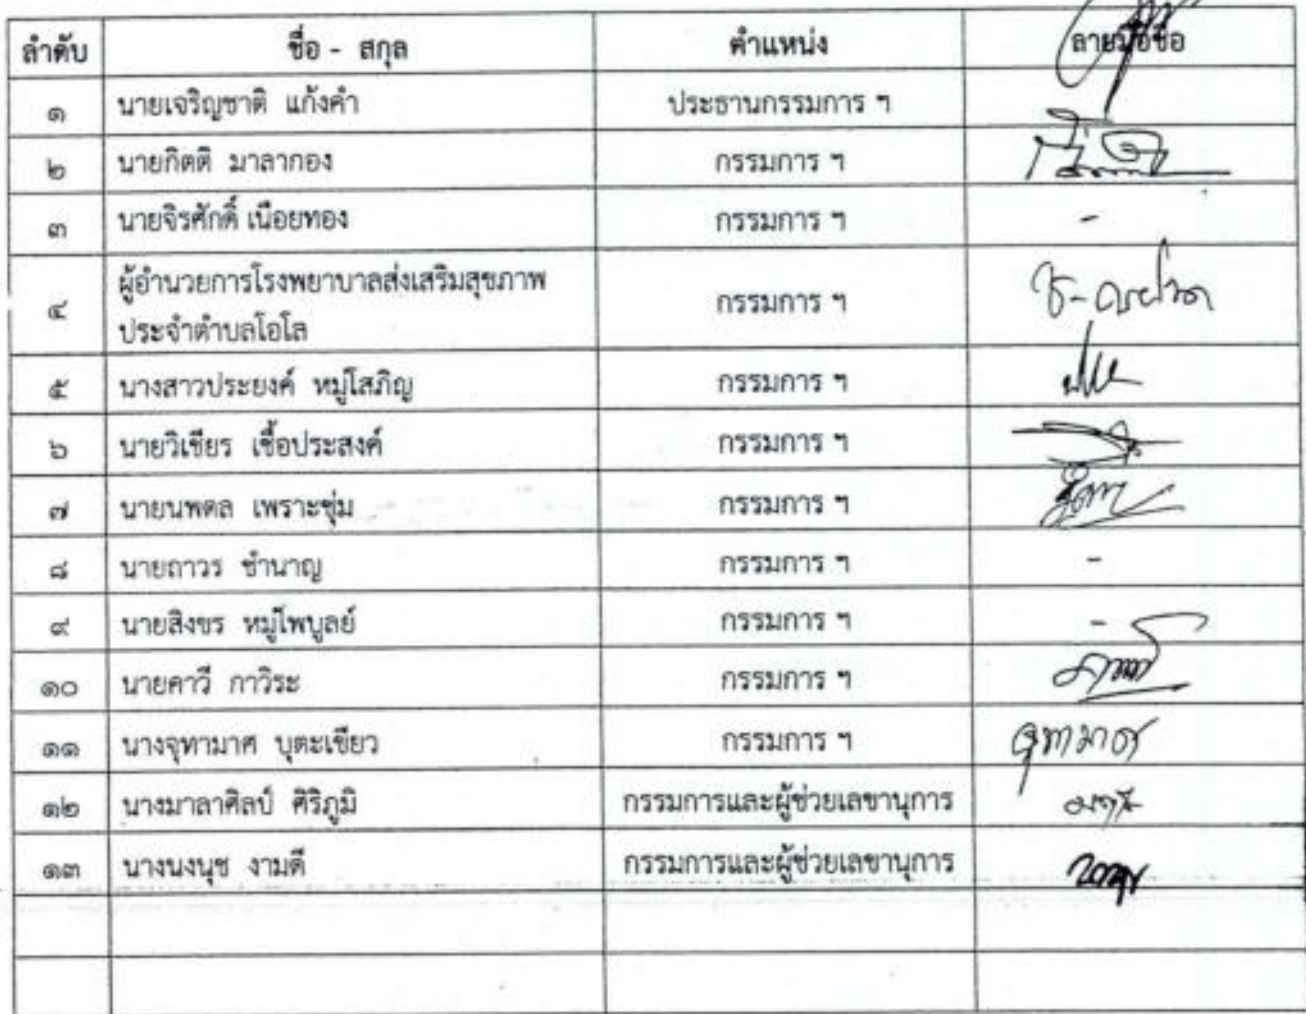 ลำดับ ชื่อ - สกุล ตำแหน่ง ลายมือชื่อ
๑ นายเจริญชาติ แก้งคำ ประธานกรรมการ ฯ
๒ นายกิตติ มาลากอง กรรมการ ฯ
๓ นายจิรศักดิ์ เนือยทอง กรรมการ ฯ -
๔ ผู้อำนวยการโรงพยาบาลส่งเสริมสุขภาพ กรรมการ ฯ
ประจำตำบลโอโล
๕ นางสาวประยงค์ หมู่โสภิญ กรรมการ ฯ
๖ นายวิเชียร เชื้อประสงค์ กรรมการ ฯ
๗ นายนพดล เพราะชุ่ม กรรมการ ฯ
๘ นายถาวร ชำนาญ กรรมการ ฯ -
๙ นายสิงขร หมู่ไพบูลย์ กรรมการ ฯ -
๑๐ นายคาวี กาวิระ กรรมการ ฯ
๑๑ นางจุฑามาศ บุตะเขียว กรรมการ ฯ จุฑามาศ
๑๒ นางมาลาศิลป์ ศิริภูมิ กรรมการและผู้ช่วยเลขานุการ
๑๓ นางนงนุช งามดี กรรมการและผู้ช่วยเลขานุการ